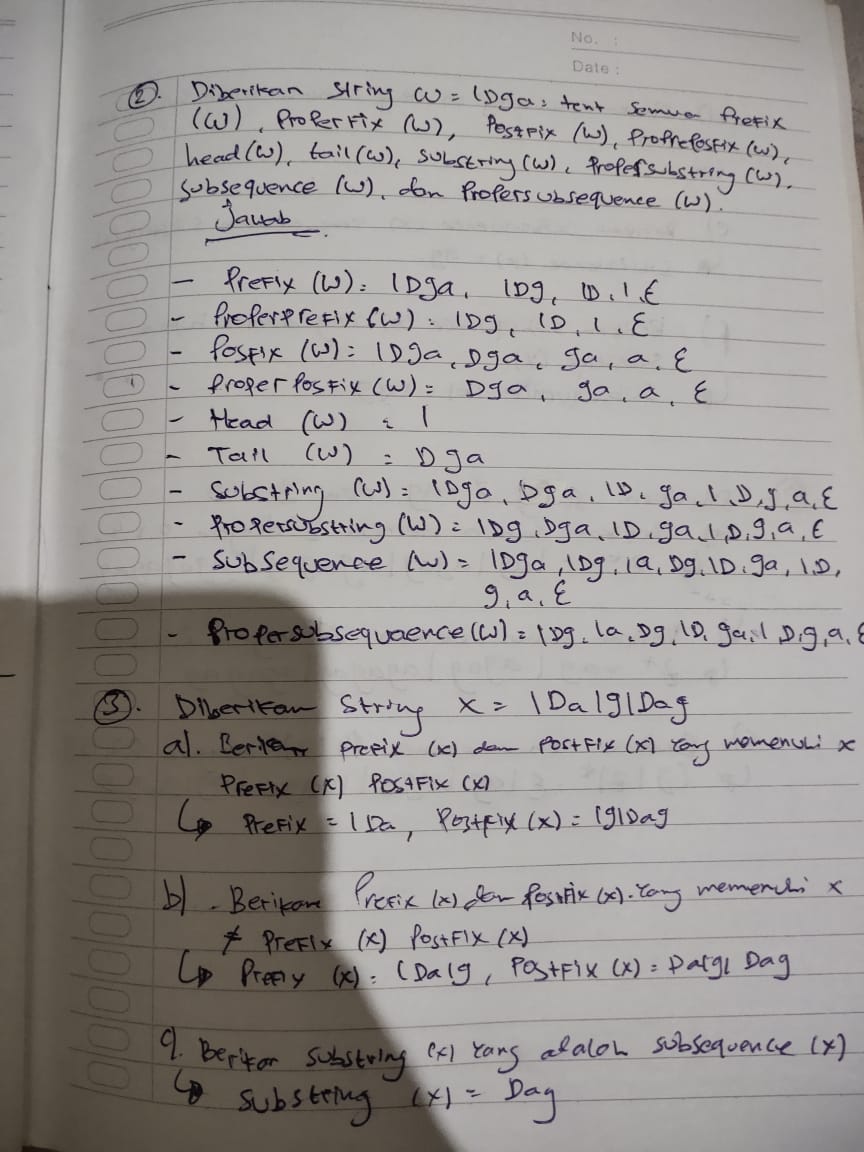 No. :
Date :
②. Diberikan String W = IDga: tent semua Prefix
(W), ProPerFix (W), Postfix (W), ProPrefosfix (W),
head (W), tail (W), substring (W), Propersubstring (W),
Subsequence (W), dan Propersubsequence (W).
Jawab
- Prefix (W) = IDga, IDg, ID, I, Ɛ
- ProPerprefix (W) : IDg, ID, I, Ɛ
- Posfix (W) = IDga, Dga, ga, a, Ɛ
- Proper Posfix (W) = Dga, ga, a, Ɛ
- Head (W) = I
- Tail (W) = Dga
- Substring (W) = IDga, Dga, ID, ga, I, D, g, a, Ɛ
- Propersubstring (W) = IDg, Dga, ID, ga, I, D, g, a, Ɛ
- Subsequence (W) = IDga, IDg, Ia, Dg, ID, ga, I, D,
g, a, Ɛ
- Propersubsequaence (W) = IDg, Ia, Dg, ID, ga, I, D, g, a, Ɛ
③. Diberikan String X = IDaIgIDag
a). Berikan prefix (x) dan Postfix (x) yang memenuhi x
Prefix (x) Postfix (x)
↳ Prefix = IDa, Postfix (x) = IgIDag
b). Berikan Prefix (x) dan Posfix (x). Yang memenuhi x
≠ Prefix (x) Postfix (x)
↳ Prefix (x) = IDaIg, Postfix (x) = DaIgI Dag
Berikan substring (x) yang adalah subsequence (x)
↳ Substring (x) = Dag